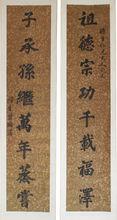 祖德宗功千載福澤
子承孫繼萬年蒸嘗